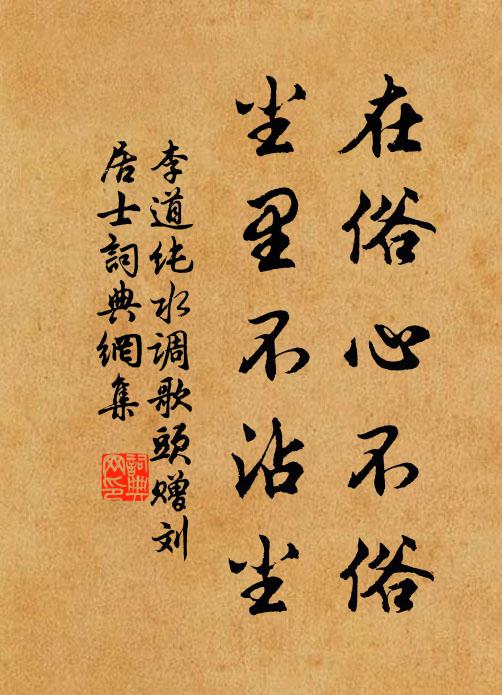 在俗心不俗
尘里不沾尘
李道纯水调歌头赠刘
居士詞典網集
詞典
网印